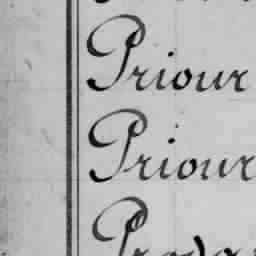 Priour
Priour